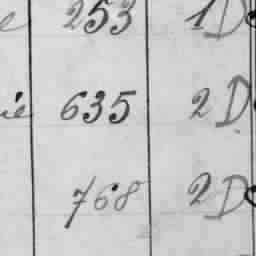 253 1D
ie 635 2D
768 2D